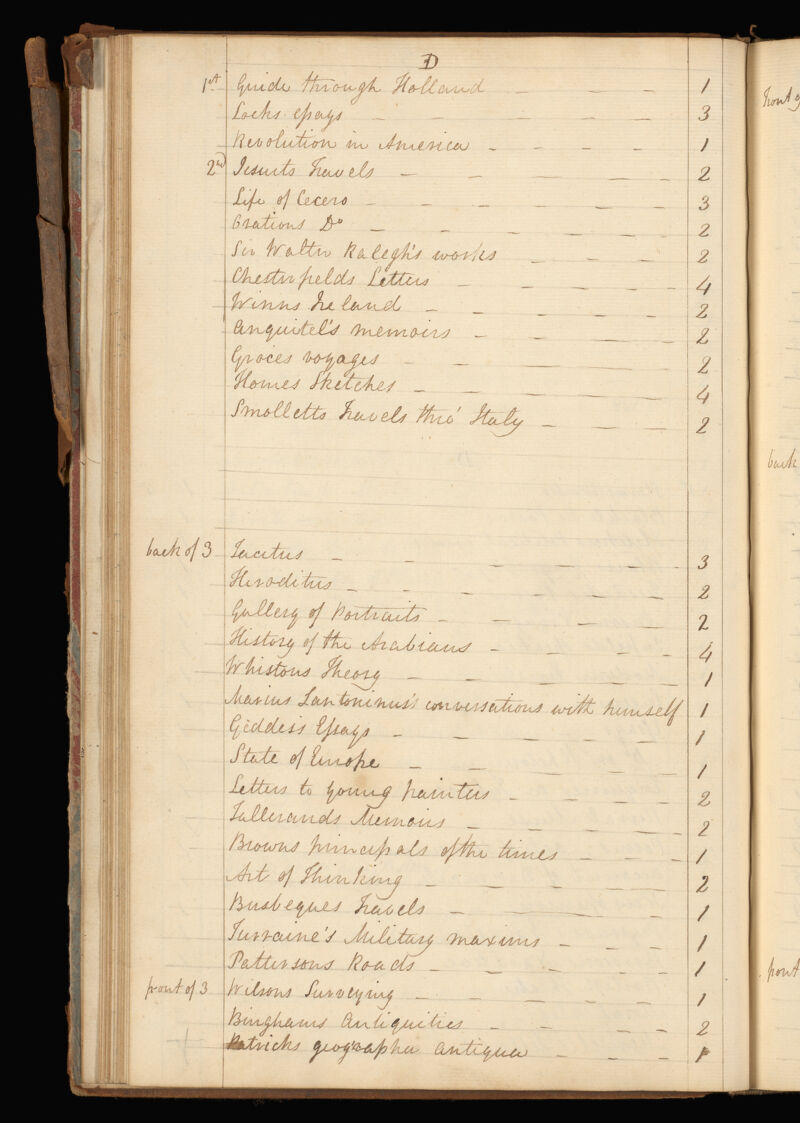 D
1st Guide through Holland - - - 1
Locks essays - - - - - - 3
Revolution in America - - - - 1
2nd Jesuits Travels - - - - 2
Life of Cecero - - - - - - 3
Orations Do - - - - - - 2
Sir Walter Ralegh's works - - - 2
Chesterfields Letters - - - - 4
Winns Ireland - - - - - 2
Anquitel's memoirs - - - - 2
Groces voyages - - - - - 2
Homes Sketches - - - - - 4
Smolletts Travels thro' Italy - - - 2
back of 3 Tacitus - - - - - - 3
Heroditus - - - - - - 2
Gallery of Portraits - - - - - 2
History of the Arabians - - - - 4
Whistons Theory - - - - - 1
Marius conversations with himself 1
Geddes's Essays - - - - - 1
State of Europe - - - - - 1
Letters to young painters - - - - 2
Tallerands Memoirs - - - - 2
Browns principals of the times - - - 1
Art of Thinking - - - - - 2
Busbeques Travels - - - - 1
Turraine's Military maxims - - - 1
Pattersons Roads - - - - - 1
front of 3 Wilsons Surveying - - - - - 1
Binghams Antiquities - - - - 2
Patricks geographia antiqua - - - 1
front
back
front